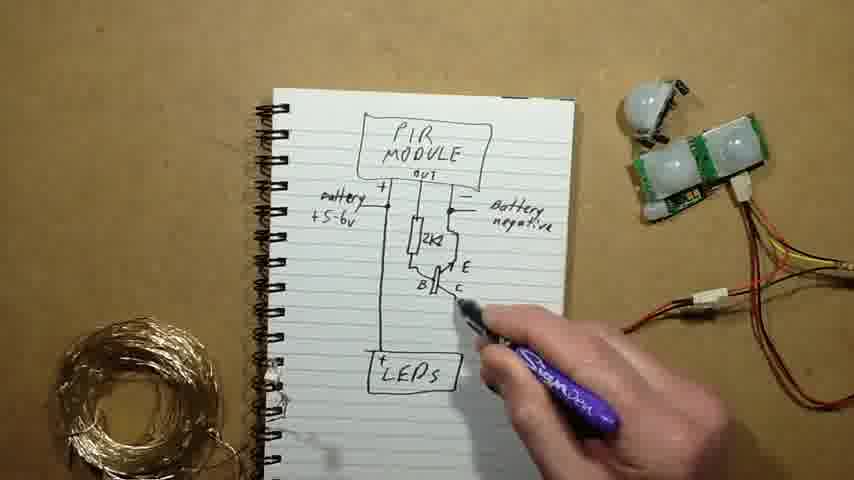 PIR
MODULE
OUT
+
-
Battery
+5-6v
Battery
negative
2K2
E
B
C
+
LEDs